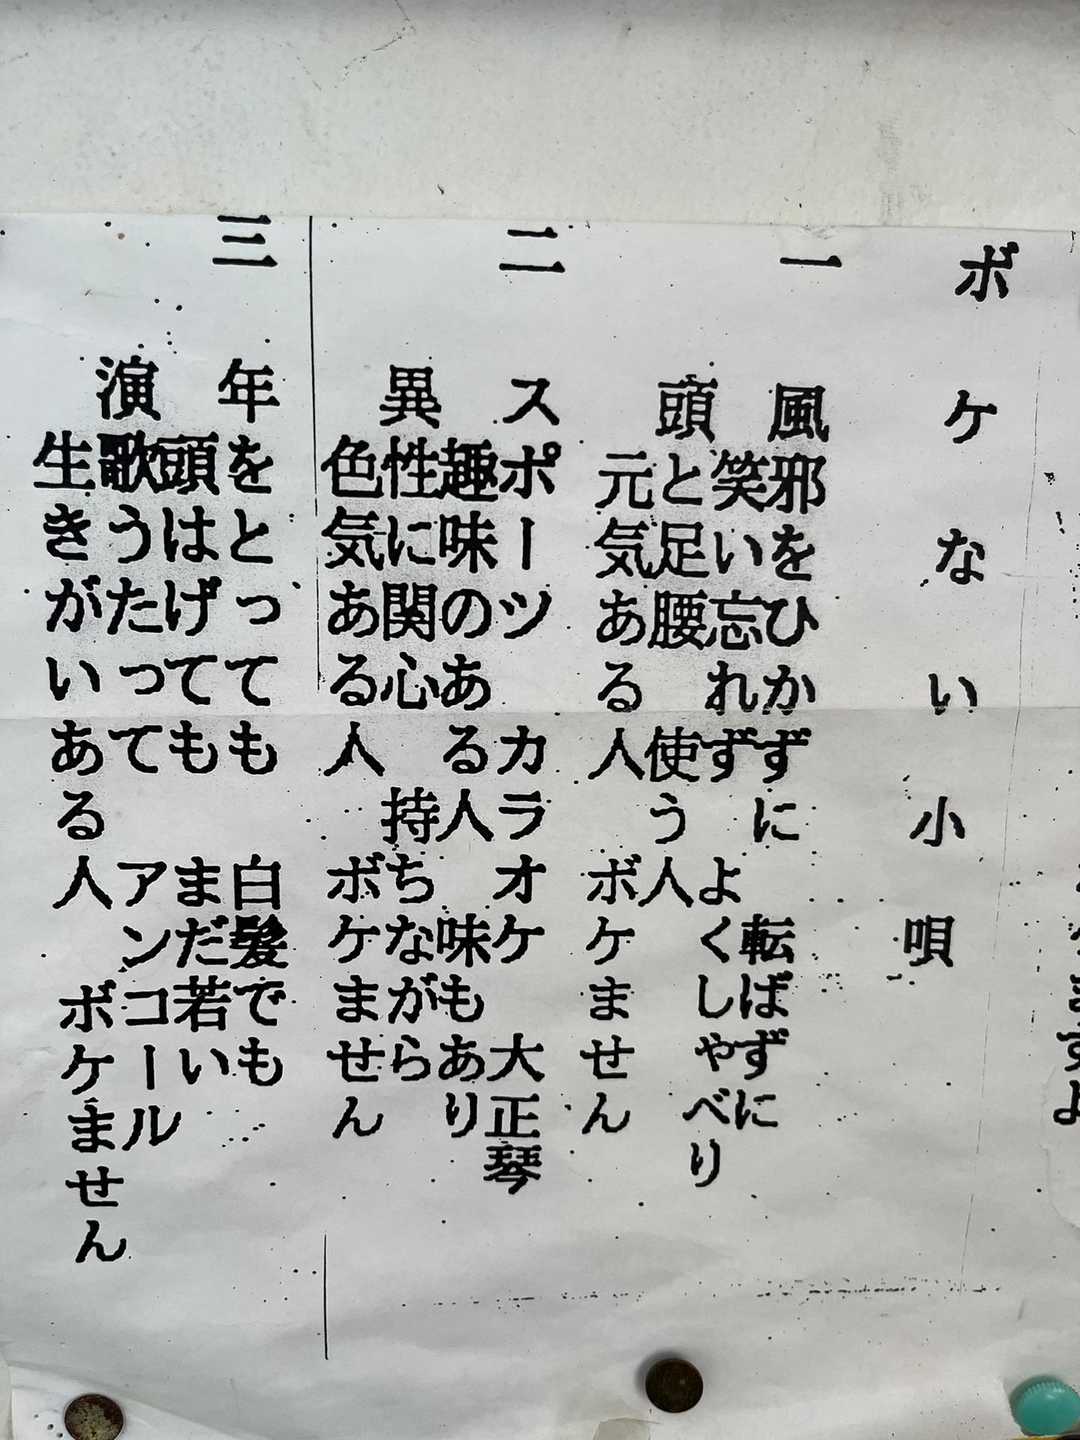 ボケない小唄
一
風邪をひかずに 転ばずに
笑い忘れず よくしゃべり
頭と足腰 使う人
元気ある人 ボケません
二
スポーツ カラオケ 大正琴
趣味のある人 味もあり
異性に関心 持ちながら
色気ある人 ボケません
三
年をとっても 白髪でも
頭はげても まだ若い
演歌うたって アンコール
生きがいある人 ボケません